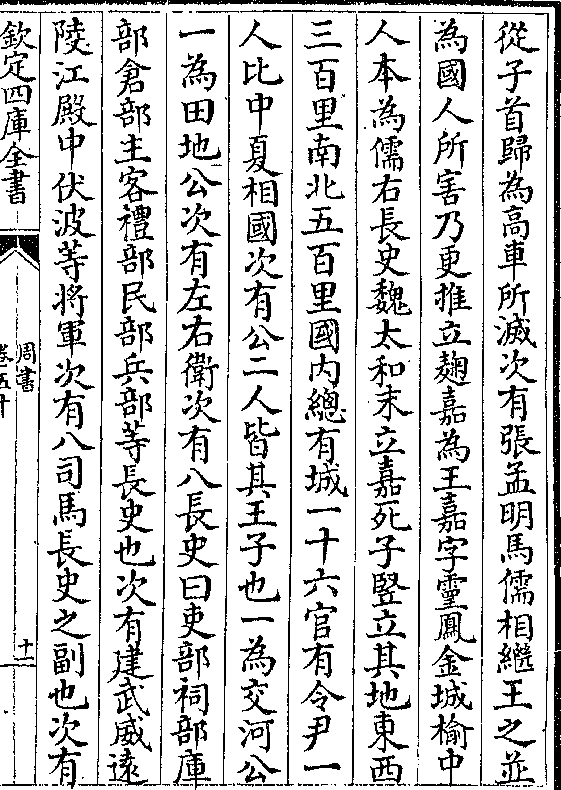 從子首歸為高車所滅次有張孟明馬儒相繼王之並
為國人所害乃更推立麴嘉為王嘉字靈鳳金城榆中
人本為儒右長史魏太和末立嘉死子竪立其地東西
三百里南北五百里國内總有城一十六官有令尹一
人比中夏相國次有公二人皆其王子也一為交河公
一為田地公次有左右衛次有八長史曰吏部祠部庫
部倉部主客禮部民部兵部等長史也次有建武威逺
陵江殿中伏波等將軍次有八司馬長史之副也次有
欽定四庫全書
周書
卷五十
十一